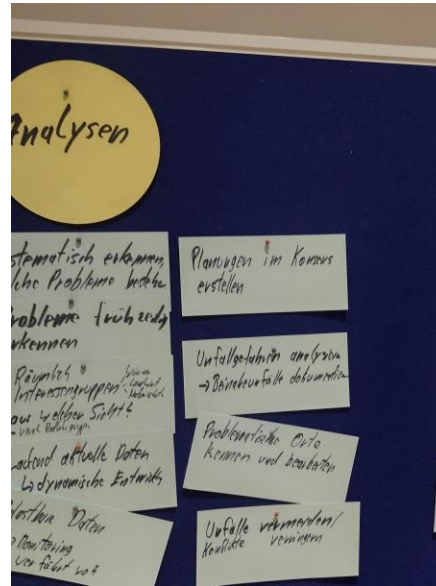 Analysen
stematisch erkennen,
lche Probleme bestehen
robleme frühzeitig
rkennen
Räumlich
Interessengruppen
aus welcher Sicht?
aufend aktuelle Daten
↳ dynamische Entwickl
Daten
→ Monitoring
Planungen im Konsens
erstellen
Unfallgefahren analysieren
→ Beinaheunfälle dokumentieren
Problematische Orte
kennen und bearbeiten
Unfälle vermeiden/
Konflikte verringern